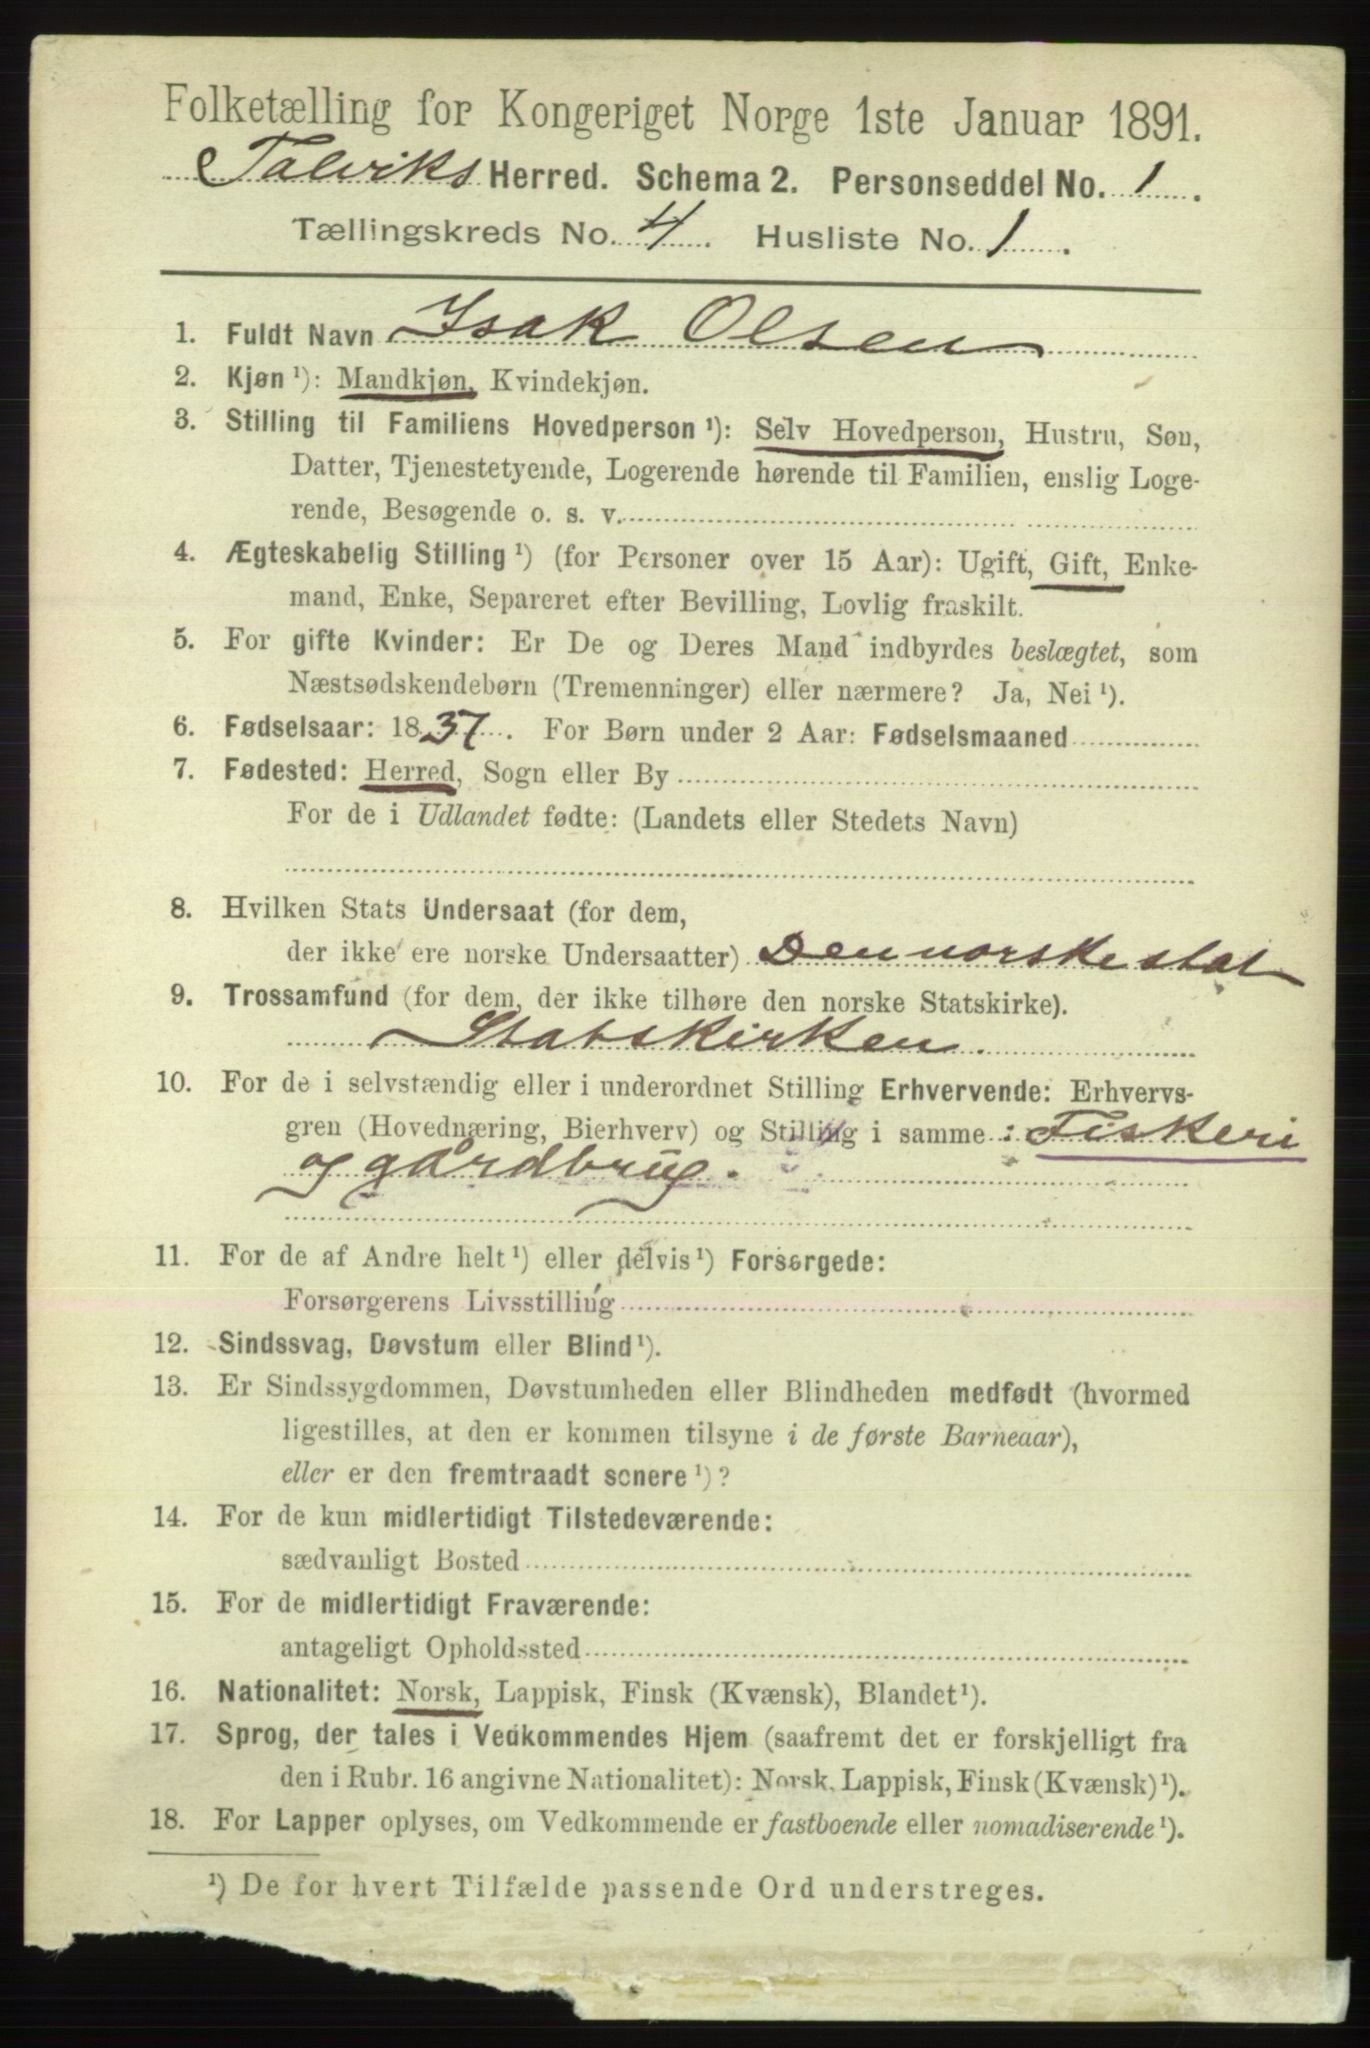 Folketælling for Kongeriget Norge 1ste Januar 1891.
Talviks Herred. Schema 2. Personseddel No. 1.
Tællingskreds No. 4. Husliste No. 1.
1. Fuldt Navn Isak Olsen
2. Kjøn ¹): Mandkjøn, Kvindekjøn.
3. Stilling til Familiens Hovedperson ¹): Selv Hovedperson, Hustru, Søn,
Datter, Tjenestetyende, Logerende hørende til Familien, enslig Loge-
rende, Besøgende o. s. v.
4. Ægteskabelig Stilling ¹) (for Personer over 15 Aar): Ugift, Gift, Enke-
mand, Enke, Separeret efter Bevilling, Lovlig fraskilt.
5. For gifte Kvinder: Er De og Deres Mand indbyrdes beslægtet, som
Næstsødskendebørn (Tremenninger) eller nærmere? Ja, Nei ¹).
6. Fødselsaar: 1837. For Børn under 2 Aar: Fødselsmaaned
7. Fødested: Herred, Sogn eller By
For de i Udlandet fødte: (Landets eller Stedets Navn)
8. Hvilken Stats Undersaat (for dem,
der ikke ere norske Undersaatter) Den norske stat
9. Trossamfund (for dem, der ikke tilhøre den norske Statskirke).
Statskirken.
10. For de i selvstændig eller i underordnet Stilling Erhvervende: Erhvervs-
gren (Hovednæring, Bierhverv) og Stilling i samme: Fiskeri
og gårdbrug.
11. For de af Andre helt ¹) eller delvis ¹) Forsørgede:
Forsørgerens Livsstilling
12. Sindssvag, Døvstum eller Blind ¹).
13. Er Sindssygdommen, Døvstumheden eller Blindheden medfødt (hvormed
ligestilles, at den er kommen tilsyne i de første Barneaar),
eller er den fremtraadt senere ¹)?
14. For de kun midlertidigt Tilstedeværende:
sædvanligt Bosted
15. For de midlertidigt Fraværende:
antageligt Opholdssted
16. Nationalitet: Norsk, Lappisk, Finsk (Kvænsk), Blandet ¹).
17. Sprog, der tales i Vedkommendes Hjem (saafremt det er forskjelligt fra
den i Rubr. 16 angivne Nationalitet): Norsk, Lappisk, Finsk (Kvænsk) ¹).
18. For Lapper oplyses, om Vedkommende er fastboende eller nomadiserende ¹).
¹) De for hvert Tilfælde passende Ord understreges.